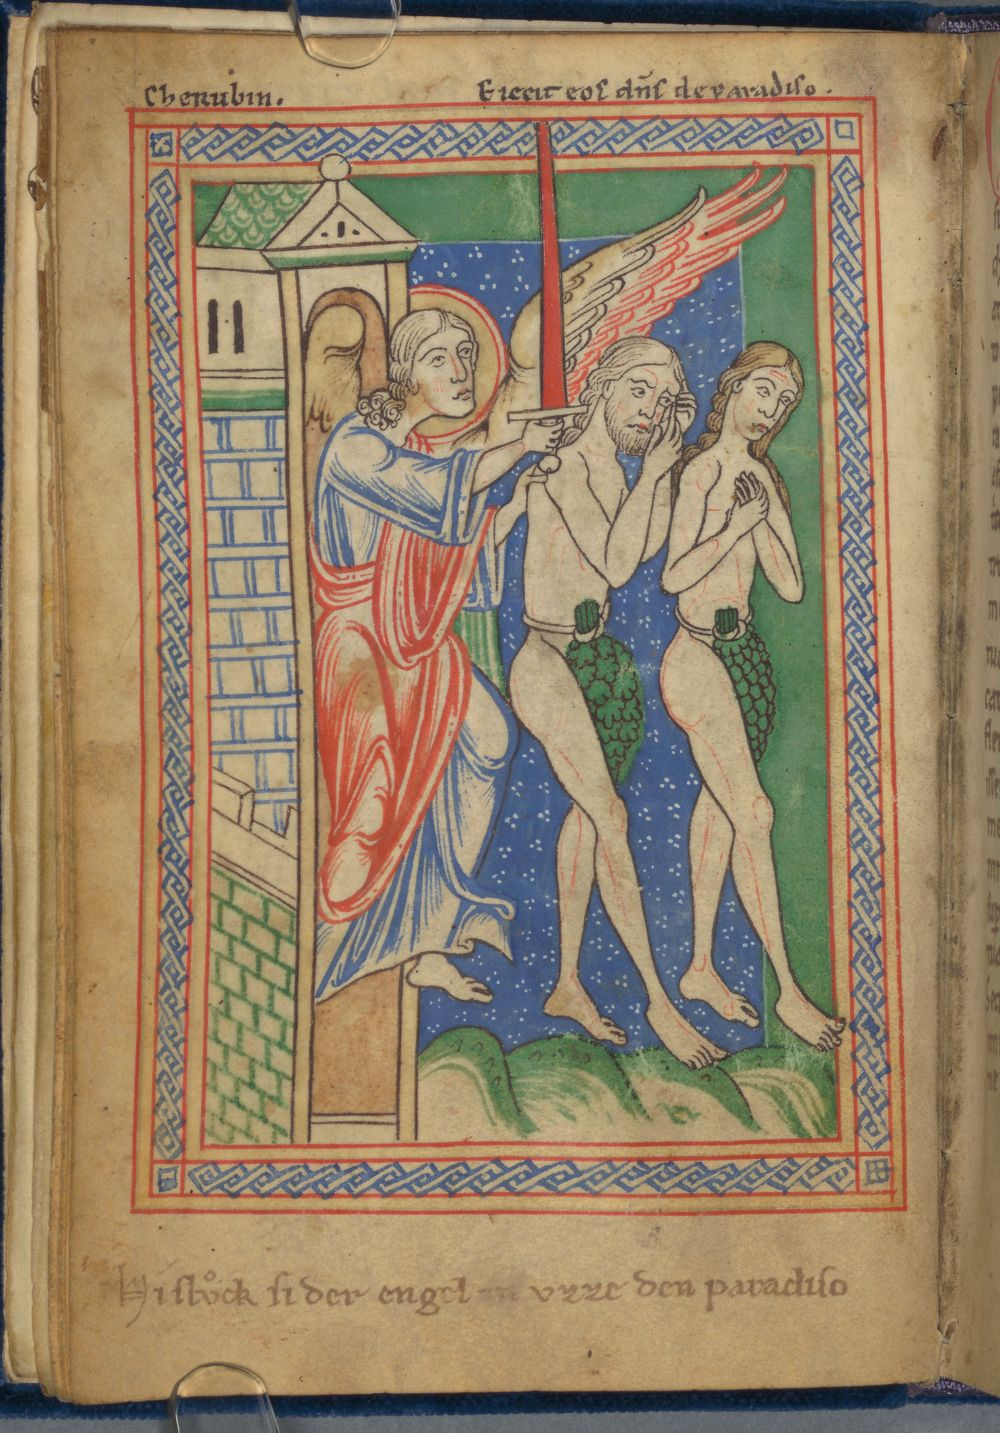 Cherubin.
Eiecit eos dn̄s de paradiso.
Hi slůck si der engel uzze den paradiso